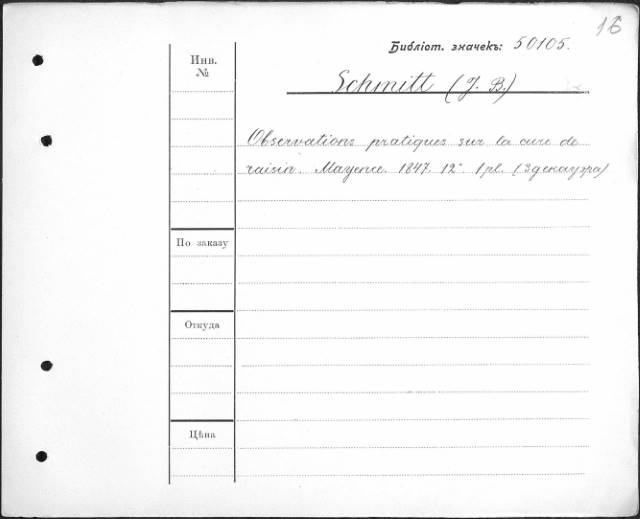 16
Библіот. значекъ: 50105.
Инв.
№
Schmitt (J. B.)
Observations pratiques sur la cure de
raisin. Mayence. 1847. 12°. 1 pl. (3 декаузра)
По заказу
Откуда
Цѣна